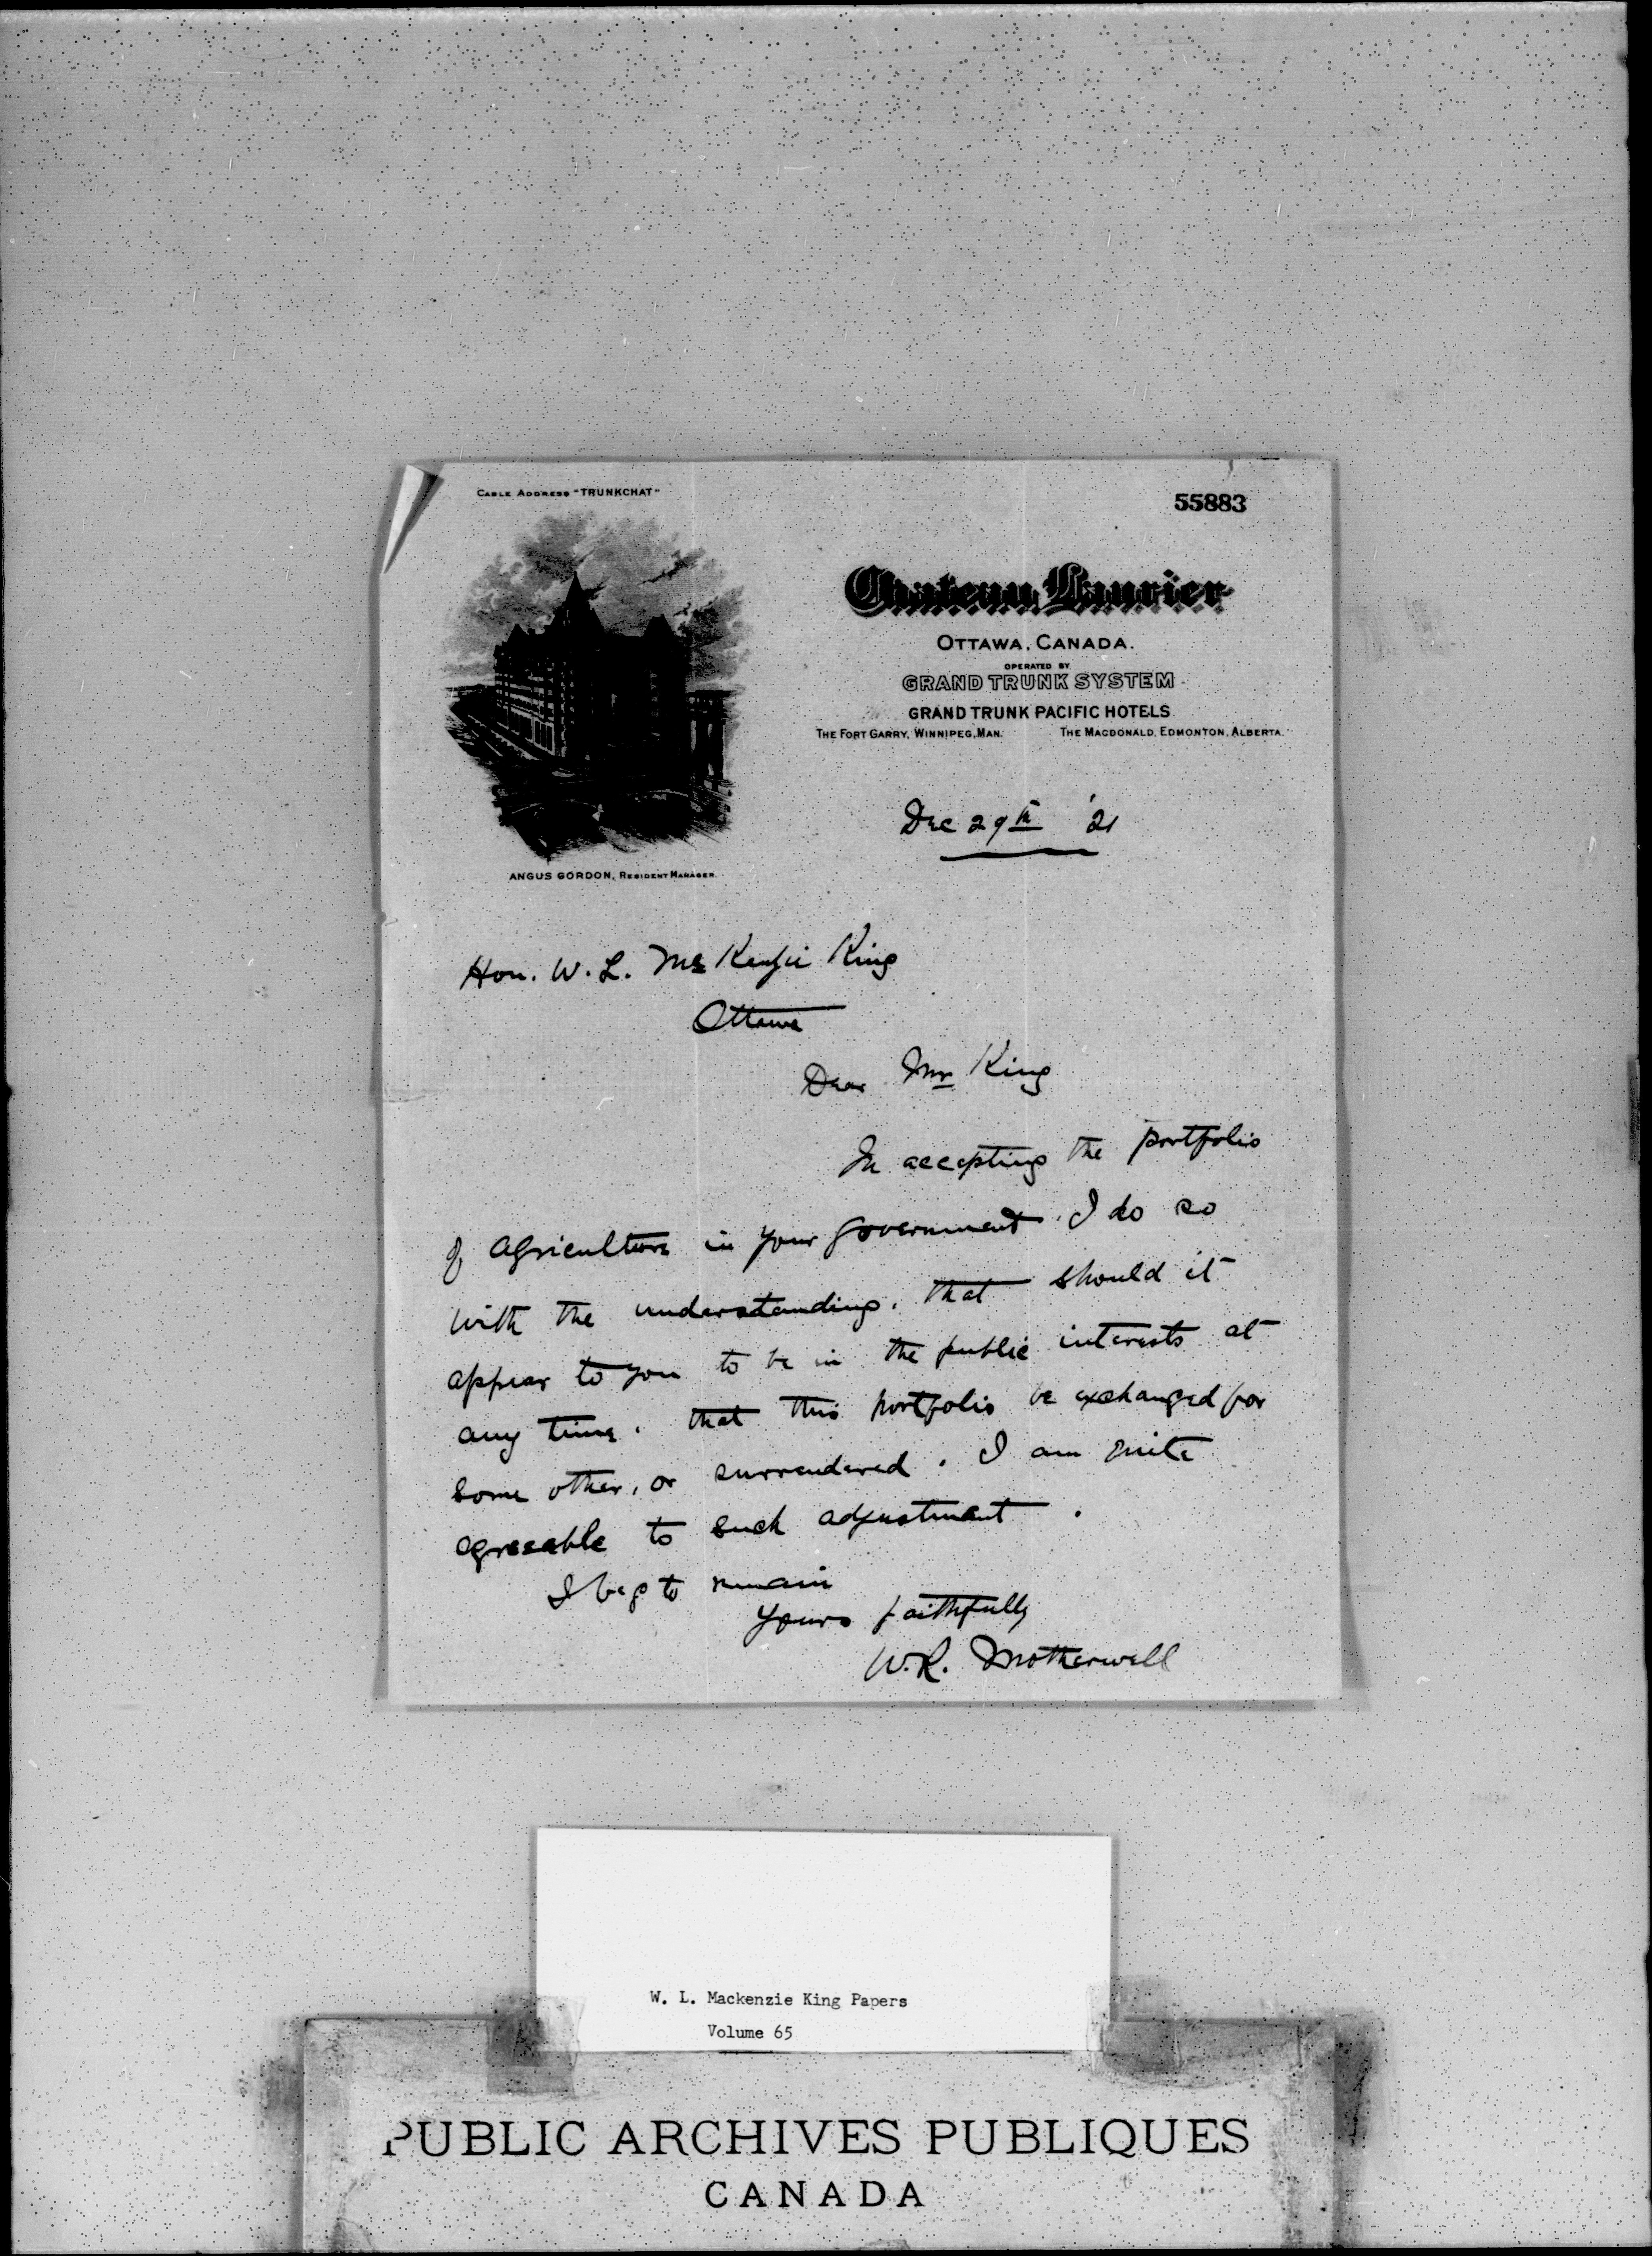 Cable Address "TRUNKCHAT"
55883
Chateau Laurier
OTTAWA, CANADA.
OPERATED BY
GRAND TRUNK SYSTEM
GRAND TRUNK PACIFIC HOTELS
THE FORT GARRY, WINNIPEG, MAN. THE MACDONALD, EDMONTON, ALBERTA.
ANGUS GORDON, RESIDENT MANAGER.
Dec 29th '21
Hon. W. L. McKenzie King
Ottawa
Dear Mr King
In accepting the portfolio
of agriculture in your government I do so
with the understanding, that should it
appear to you to be in the public interests at
any time, that this portfolio be exchanged for
some other, or surrendered. I am quite
agreeable to such adjustment.
I beg to remain
Yours faithfully
W.R. Motherwell
W. L. Mackenzie King Papers
Volume 65
PUBLIC ARCHIVES PUBLIQUES
CANADA